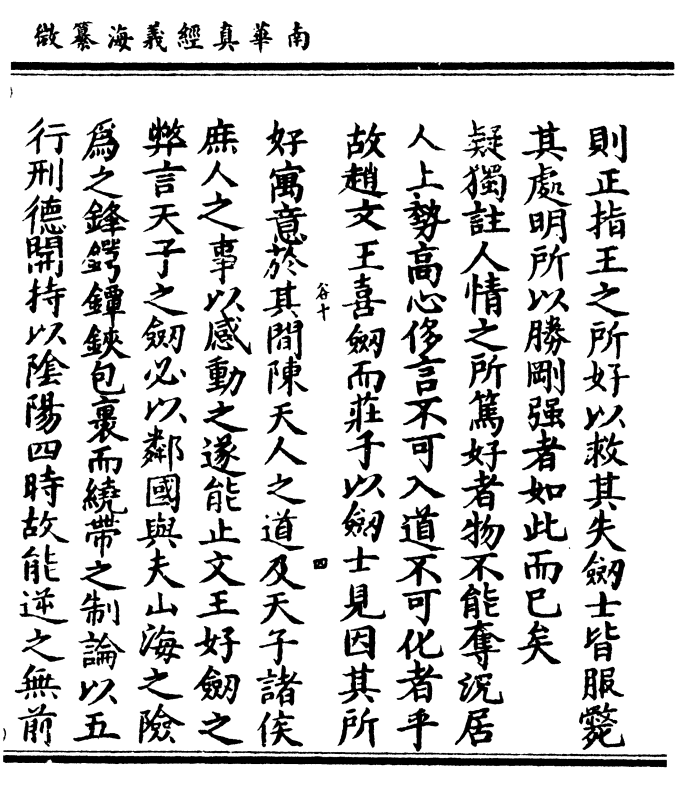 南華真經義海纂微
則正指王之所好以救其失劒士皆服斃
其處明所以勝剛强者如此而已矣
疑獨註人情之所篤好者物不能奪況居
人上勢髙心侈言不可入道不可化者乎
故趙文王喜劒而莊子以劒士見因其所
谷十
四
好寓意於其間陳天人之道及天子諸侯
庶人之事以感動之遂能止文王好劒之
弊言天子之劒必以鄰國與夫山海之險
爲之鋒鍔鐔鋏包裹而繞帶之制論以五
行刑德開持以陰陽四時故能逆之無前